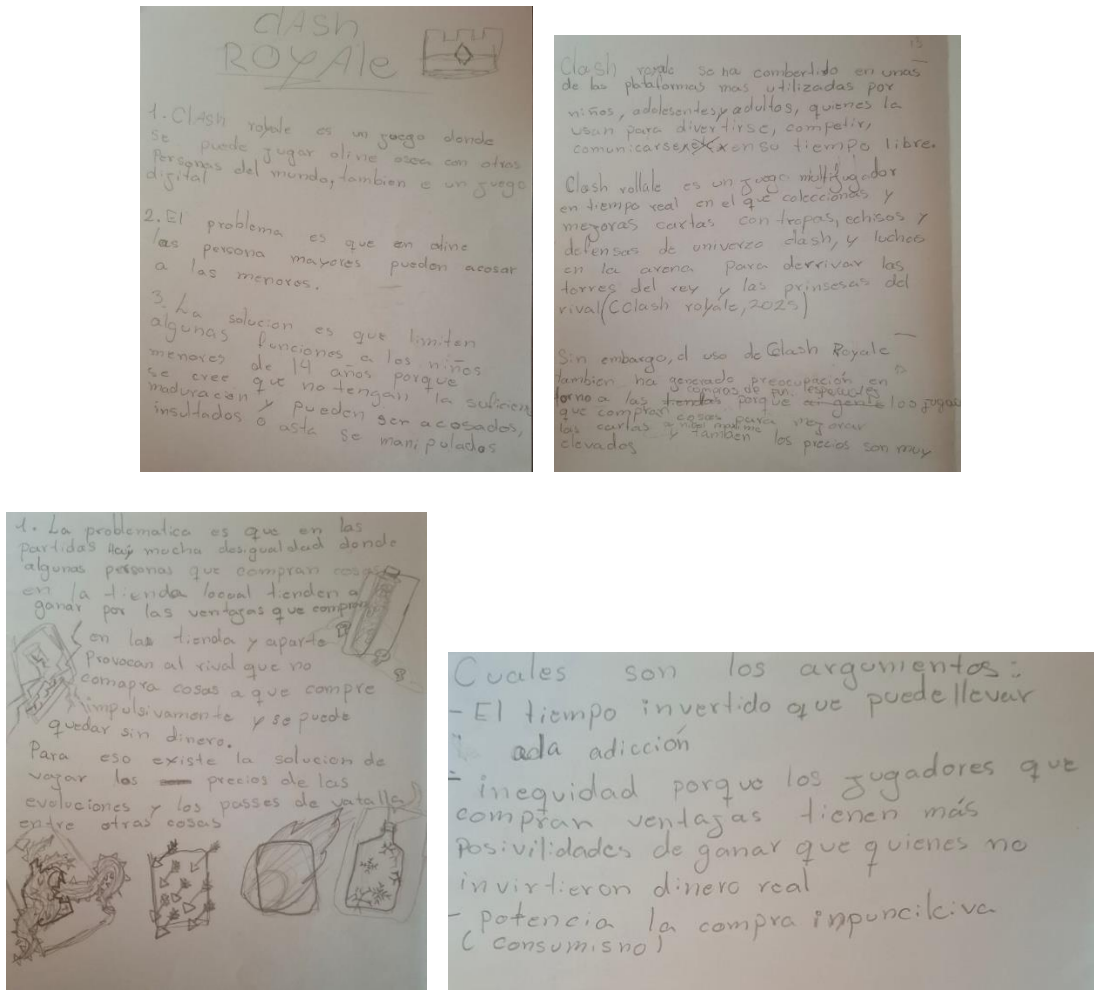 ClASh
ROYAle
1. ClAsh royale es un juego donde
se puede jugar oline osea con otras
Personas del mundo, tambien e un juego
digital
2. El problema es que en oline
las percona mayores pueden acosar
a las menores.
3. La solucion es que limiten
algunas funciones a los niños
menores de 14 años porque
se cree que no tengan la suficien
maduracion y pueden ser acosados,
insultados o asta se manipulados
Clash royale se ha combertido en unas
de las plataformas mas utilizadas por
niños, adolesentes y adultos, quienes la
usan para divertirse, competir,
comunicarse en su tiempo libre.
Clash rollale es un juego multijugador
en tiempo real en el que coleccionas y
mejoras cartas con tropas, echisos y
defensas de univerzo clash, y luchas
en la arena para derrivar las
torres del rey y las prinsesas del
rival (Cclash royale, 2025)
Sin embargo, el uso de Clash Royale
tambien ha generado preocupación en
torno a las tiendas porque los jugad
que compran cosas para mejorar
las cartas a nivel maximo
y tambien los precios son muy
elevados
1. La problematica es que en las
partidas Hay mucha desigualdad donde
algunas personas que compran cosas
en la tienda locual tienden a
ganar por las ventajas que compran
en las tienda y aparte
Provocan al rival que no
comapra cosas a que compre
impulsivamente y se puede
quedar sin dinero.
Para eso existe la solucion de
vajar los precios de las
evoluciones y los passes de vatalla
entre otras cosas
Cuales son los argumentos:
- El tiempo invertido que puede llevar
ada adicción
- inequidad porque los jugadores que
compran ventajas tienen más
Posivilidades de ganar que quienes no
invirtieron dinero real
- potencia la compra inpuncilciva
(consumismo)